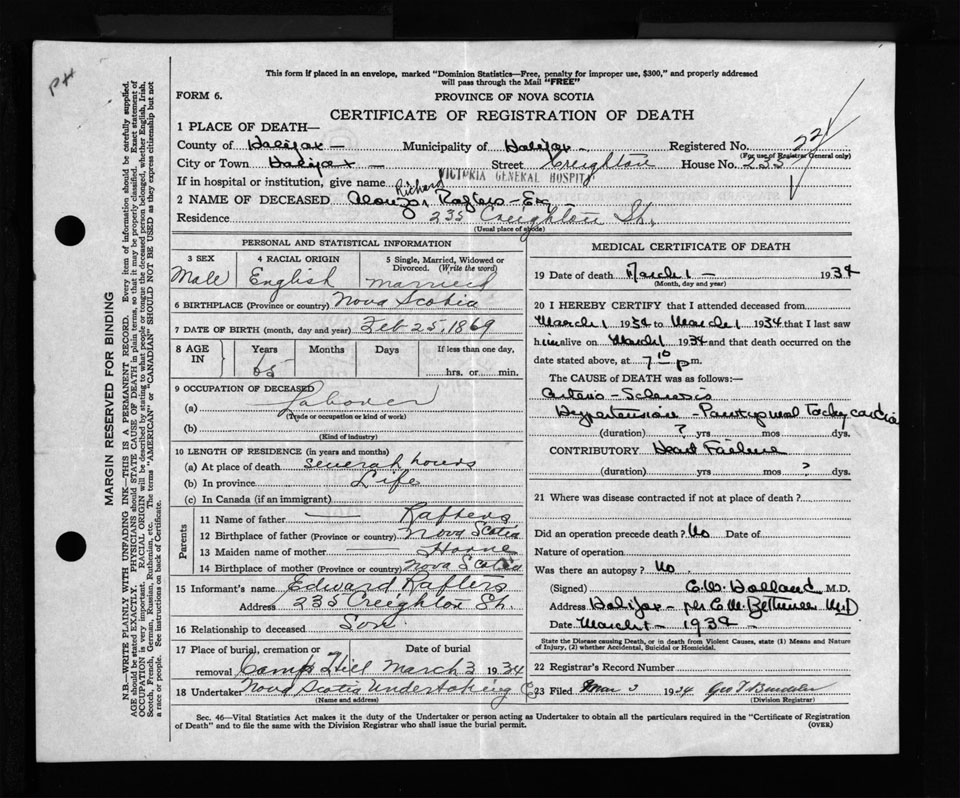 PH
This form if placed in an envelope, marked "Dominion Statistics—Free, penalty for improper use, $300," and properly addressed
will pass through the Mail "FREE"
FORM 6.
PROVINCE OF NOVA SCOTIA
CERTIFICATE OF REGISTRATION OF DEATH
1 PLACE OF DEATH—
County of Halifax — Municipality of Halifax — Registered No.
(For use of Registrar General only)
City or Town Halifax — Street Creighton House No. 235
If in hospital or institution, give name VICTORIA GENERAL HOSPITAL
Richard
2 NAME OF DECEASED Alonzo Rafters
Residence 235 Creighton St.
(Usual place of abode)
PERSONAL AND STATISTICAL INFORMATION
3 SEX 4 RACIAL ORIGIN 5 Single, Married, Widowed or Divorced. (Write the word)
Male English Married
6 BIRTHPLACE (Province or country) Nova Scotia
7 DATE OF BIRTH (month, day and year) Feb 25, 1869
8 AGE IN Years Months Days If less than one day,
65 hrs. or min.
9 OCCUPATION OF DECEASED
(a) Laborer
(Trade or occupation or kind of work)
(b)
(Kind of industry)
10 LENGTH OF RESIDENCE (in years and months)
(a) At place of death several hours
(b) In province Life
(c) In Canada (if an immigrant)
Parents
11 Name of father — Rafters
12 Birthplace of father (Province or country) Nova Scotia
13 Maiden name of mother —
14 Birthplace of mother (Province or country) Nova Scotia
15 Informant's name Edward Rafters
Address 235 Creighton St.
16 Relationship to deceased Son
17 Place of burial, cremation or Date of burial
removal Camp Hill March 3 1934
18 Undertaker Nova Scotia Undertaking Co
(Name and address)
MEDICAL CERTIFICATE OF DEATH
19 Date of death March 1 — 1934
(Month, day and year)
20 I HEREBY CERTIFY that I attended deceased from
March 1 1934 to March 1 1934 that I last saw
him alive on March 1 1934 and that death occurred on the
date stated above, at 7 10 p m.
The CAUSE OF DEATH was as follows:—
Arterio-Sclerosis
Hypertension - Paroxysmal Tachycardia
(duration) ? yrs mos dys.
CONTRIBUTORY Heart Failure
(duration) yrs. mos ? dys.
21 Where was disease contracted if not at place of death?
Did an operation precede death? No Date of
Nature of operation
Was there an autopsy? No.
(Signed) M.D.
Address Halifax - per MD
Date March 1 - 1934
State the Disease causing Death, or in death from Violent Causes, state (1) Means and Nature
of Injury, (2) whether Accidental, Suicidal or Homicidal.
22 Registrar's Record Number
23 Filed Mar 3 1934
(Division Registrar)
Sec. 46—Vital Statistics Act makes it the duty of the Undertaker or person acting as Undertaker to obtain all the particulars required in the "Certificate of Registration
of Death" and to file the same with the Division Registrar who shall issue the burial permit.
(OVER)
MARGIN RESERVED FOR BINDING
N.B.—WRITE PLAINLY WITH UNFADING INK—THIS IS A PERMANENT RECORD. Every item of information should be carefully supplied.
AGE should be stated EXACTLY. PHYSICIANS should STATE CAUSE OF DEATH in plain terms, so that it may be properly classified. Exact statement of
OCCUPATION is very important. RACIAL ORIGIN will be described by stating to what people or tongue the deceased person belonged, whether English, Irish,
Scotch, French, German, Russian, Ruthenian, etc. The terms "AMERICAN" or "CANADIAN" SHOULD NOT BE USED as they express citizenship but not
a race or people. See instructions on back of Certificate.